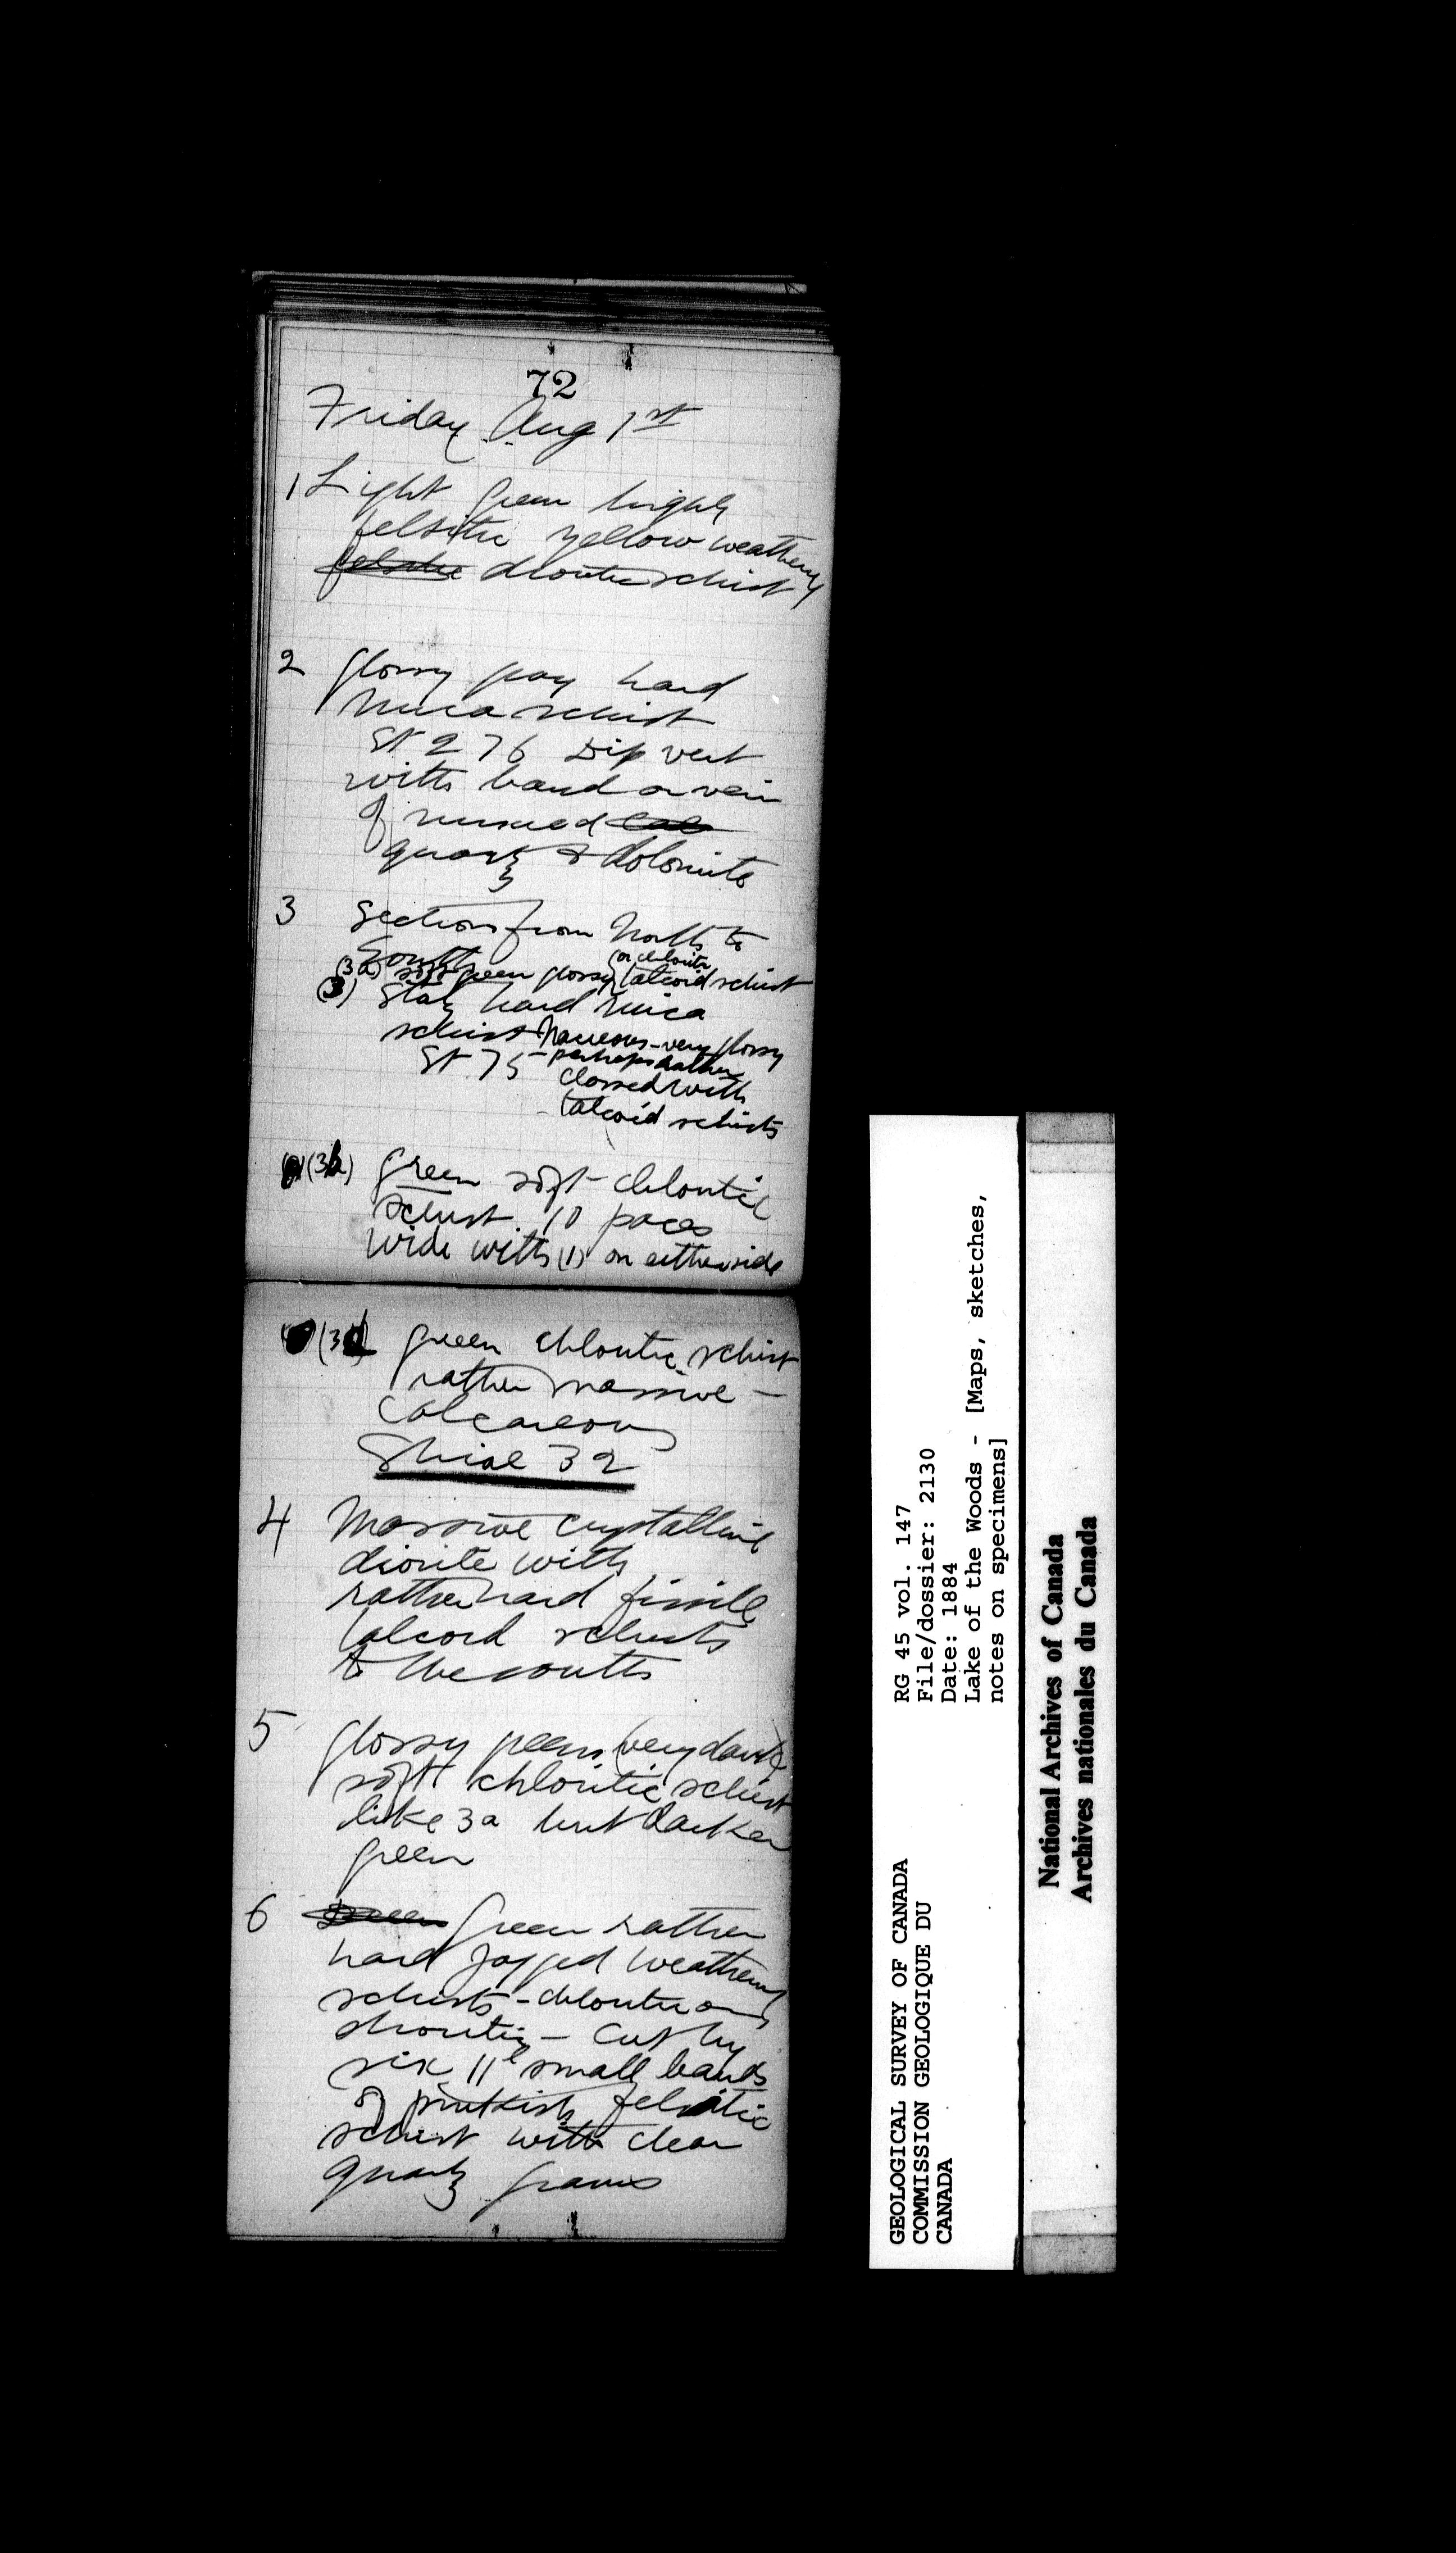 72
Friday Aug 1st
1 Light green highly
felsitic yellow weathering
felsitic dioritic schist
2 glossy gray hard
mica schist
St 276 Dip vert
with band or vein
of
quartz & dolomite
3 Section from North to
South
(3a) soft green glossy (or chloritic) talcoid schist
(3) Slaty hard mica
schist Nacreous - very glossy
St 75 - perhaps rather
classed with
talcoid schists
(3b) green soft chloritic
schist 10 paces
wide with (1) on either side
(3d green chloritic schist
rather massive -
Calcareous
32
4 Massive crystalline
diorite with
rather hard fissile
talcoid schists
to the south
5 glossy green (very dark)
soft chloritic schist
like 3a but darker
green
6 green Green rather
hard jagged weathering
schists - chloritic and
dioritic - cut by
six 11e small bands
of pinkish felsitic
schist with clear
quartz grains
RG 45 vol. 147
File/dossier: 2130
Date: 1884
Lake of the Woods - [Maps, sketches,
notes on specimens]
GEOLOGICAL SURVEY OF CANADA
COMMISSION GEOLOGIQUE DU
CANADA
National Archives of Canada
Archives nationales du Canada